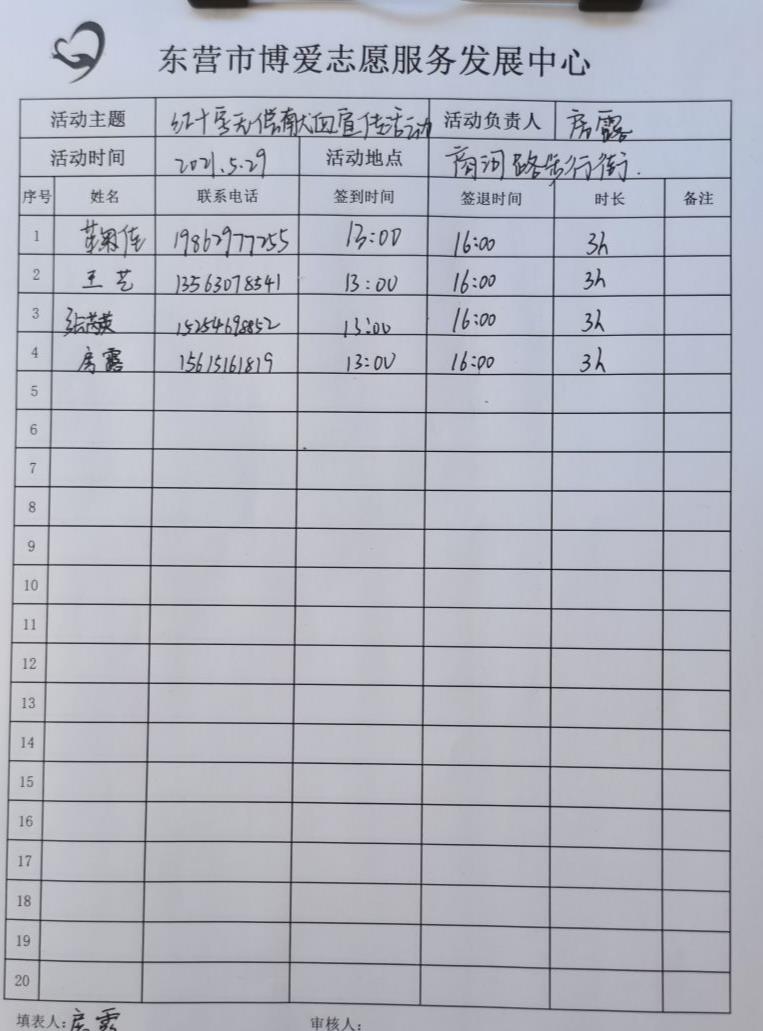 东营市博爱志愿服务发展中心
活动主题 红十字无偿献血宣传活动 活动负责人 房露
活动时间 2021.5.29 活动地点 商河路步行街.
序号 姓名 联系电话 签到时间 签退时间 时长 备注
1 佳 19862977255 13:00 16:00 3h
2 王艺 13563078541 13:00 16:00 3h
3 张英 15254698852 13:00 16:00 3h
4 房露 15615161819 13:00 16:00 3h
5
6
7
8
9
10
11
12
13
14
15
16
17
18
19
20
填表人:房露 审核人: